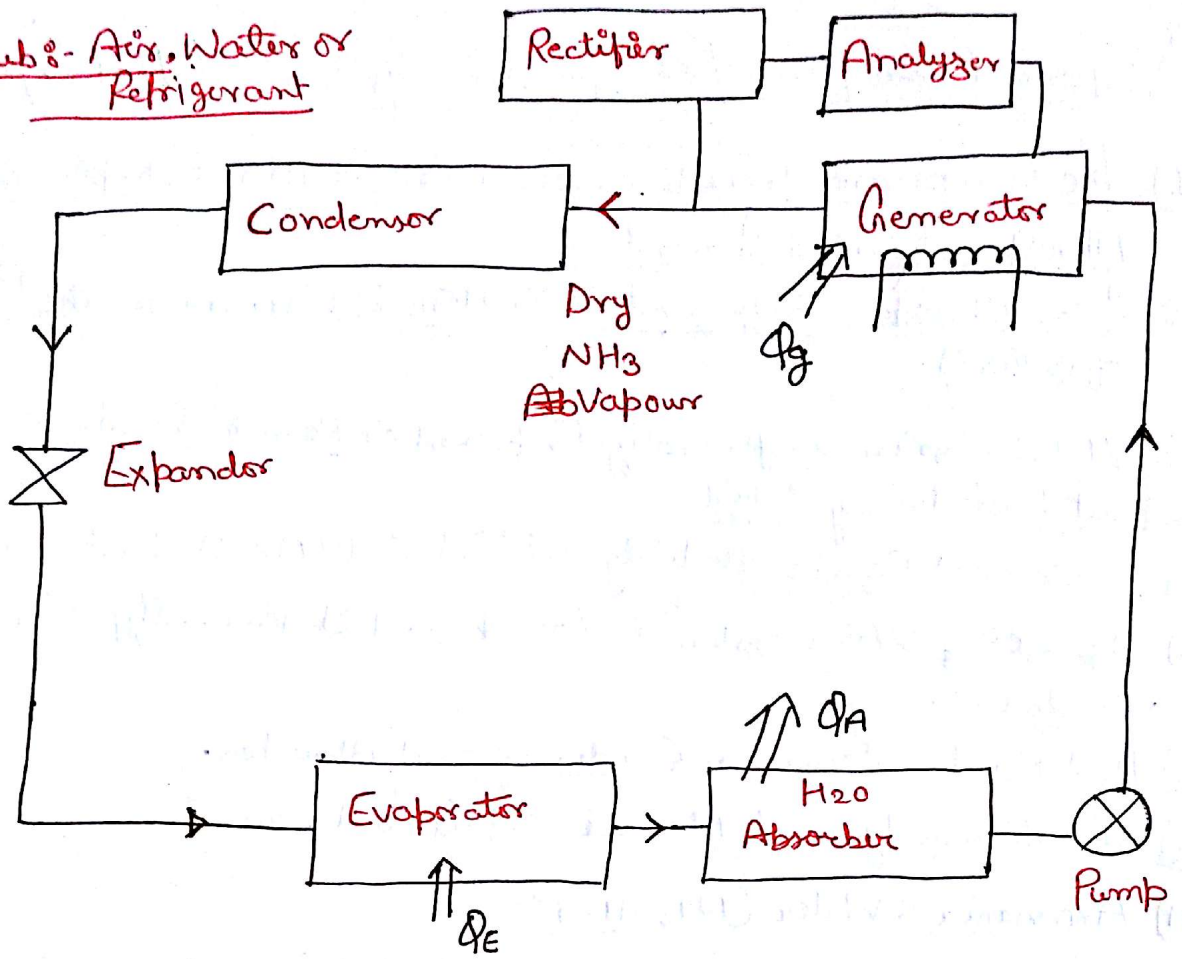 Air, Water or
Refrigerant
Rectifier
Analyzer
Condensor
Generator
Dry
NH3
Vapour
Qg
Expandor
QA
Evaporator
H20
Absorber
Pump
QE